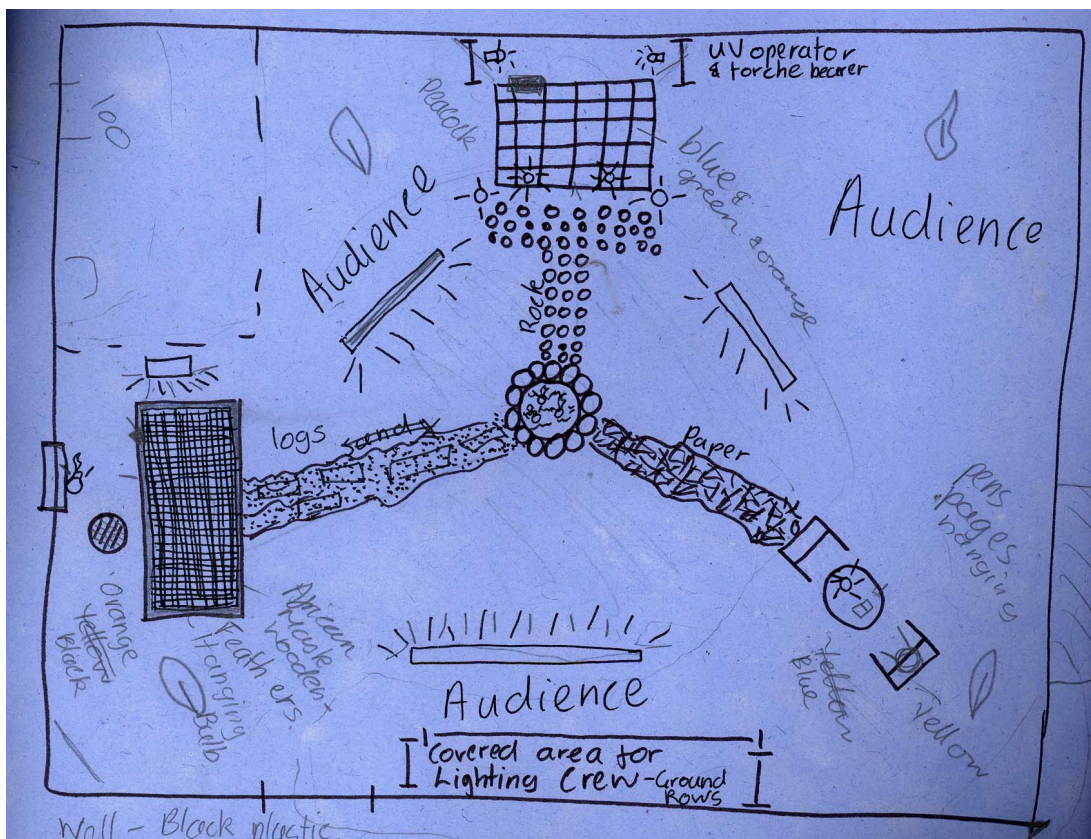 UV operator
& torche bearer
100
Peacock
blue &
green & orange
Audience
Audience
Rock
logs sand
Paper
pens
pages
hanging
Orange
Yellow
Black
Hanging
Feathers
African
Wooden
Bulb
Yellow
Blue
Yellow
Audience
Covered area for
Lighting Crew - Ground
Rows
Wall - Black plastic